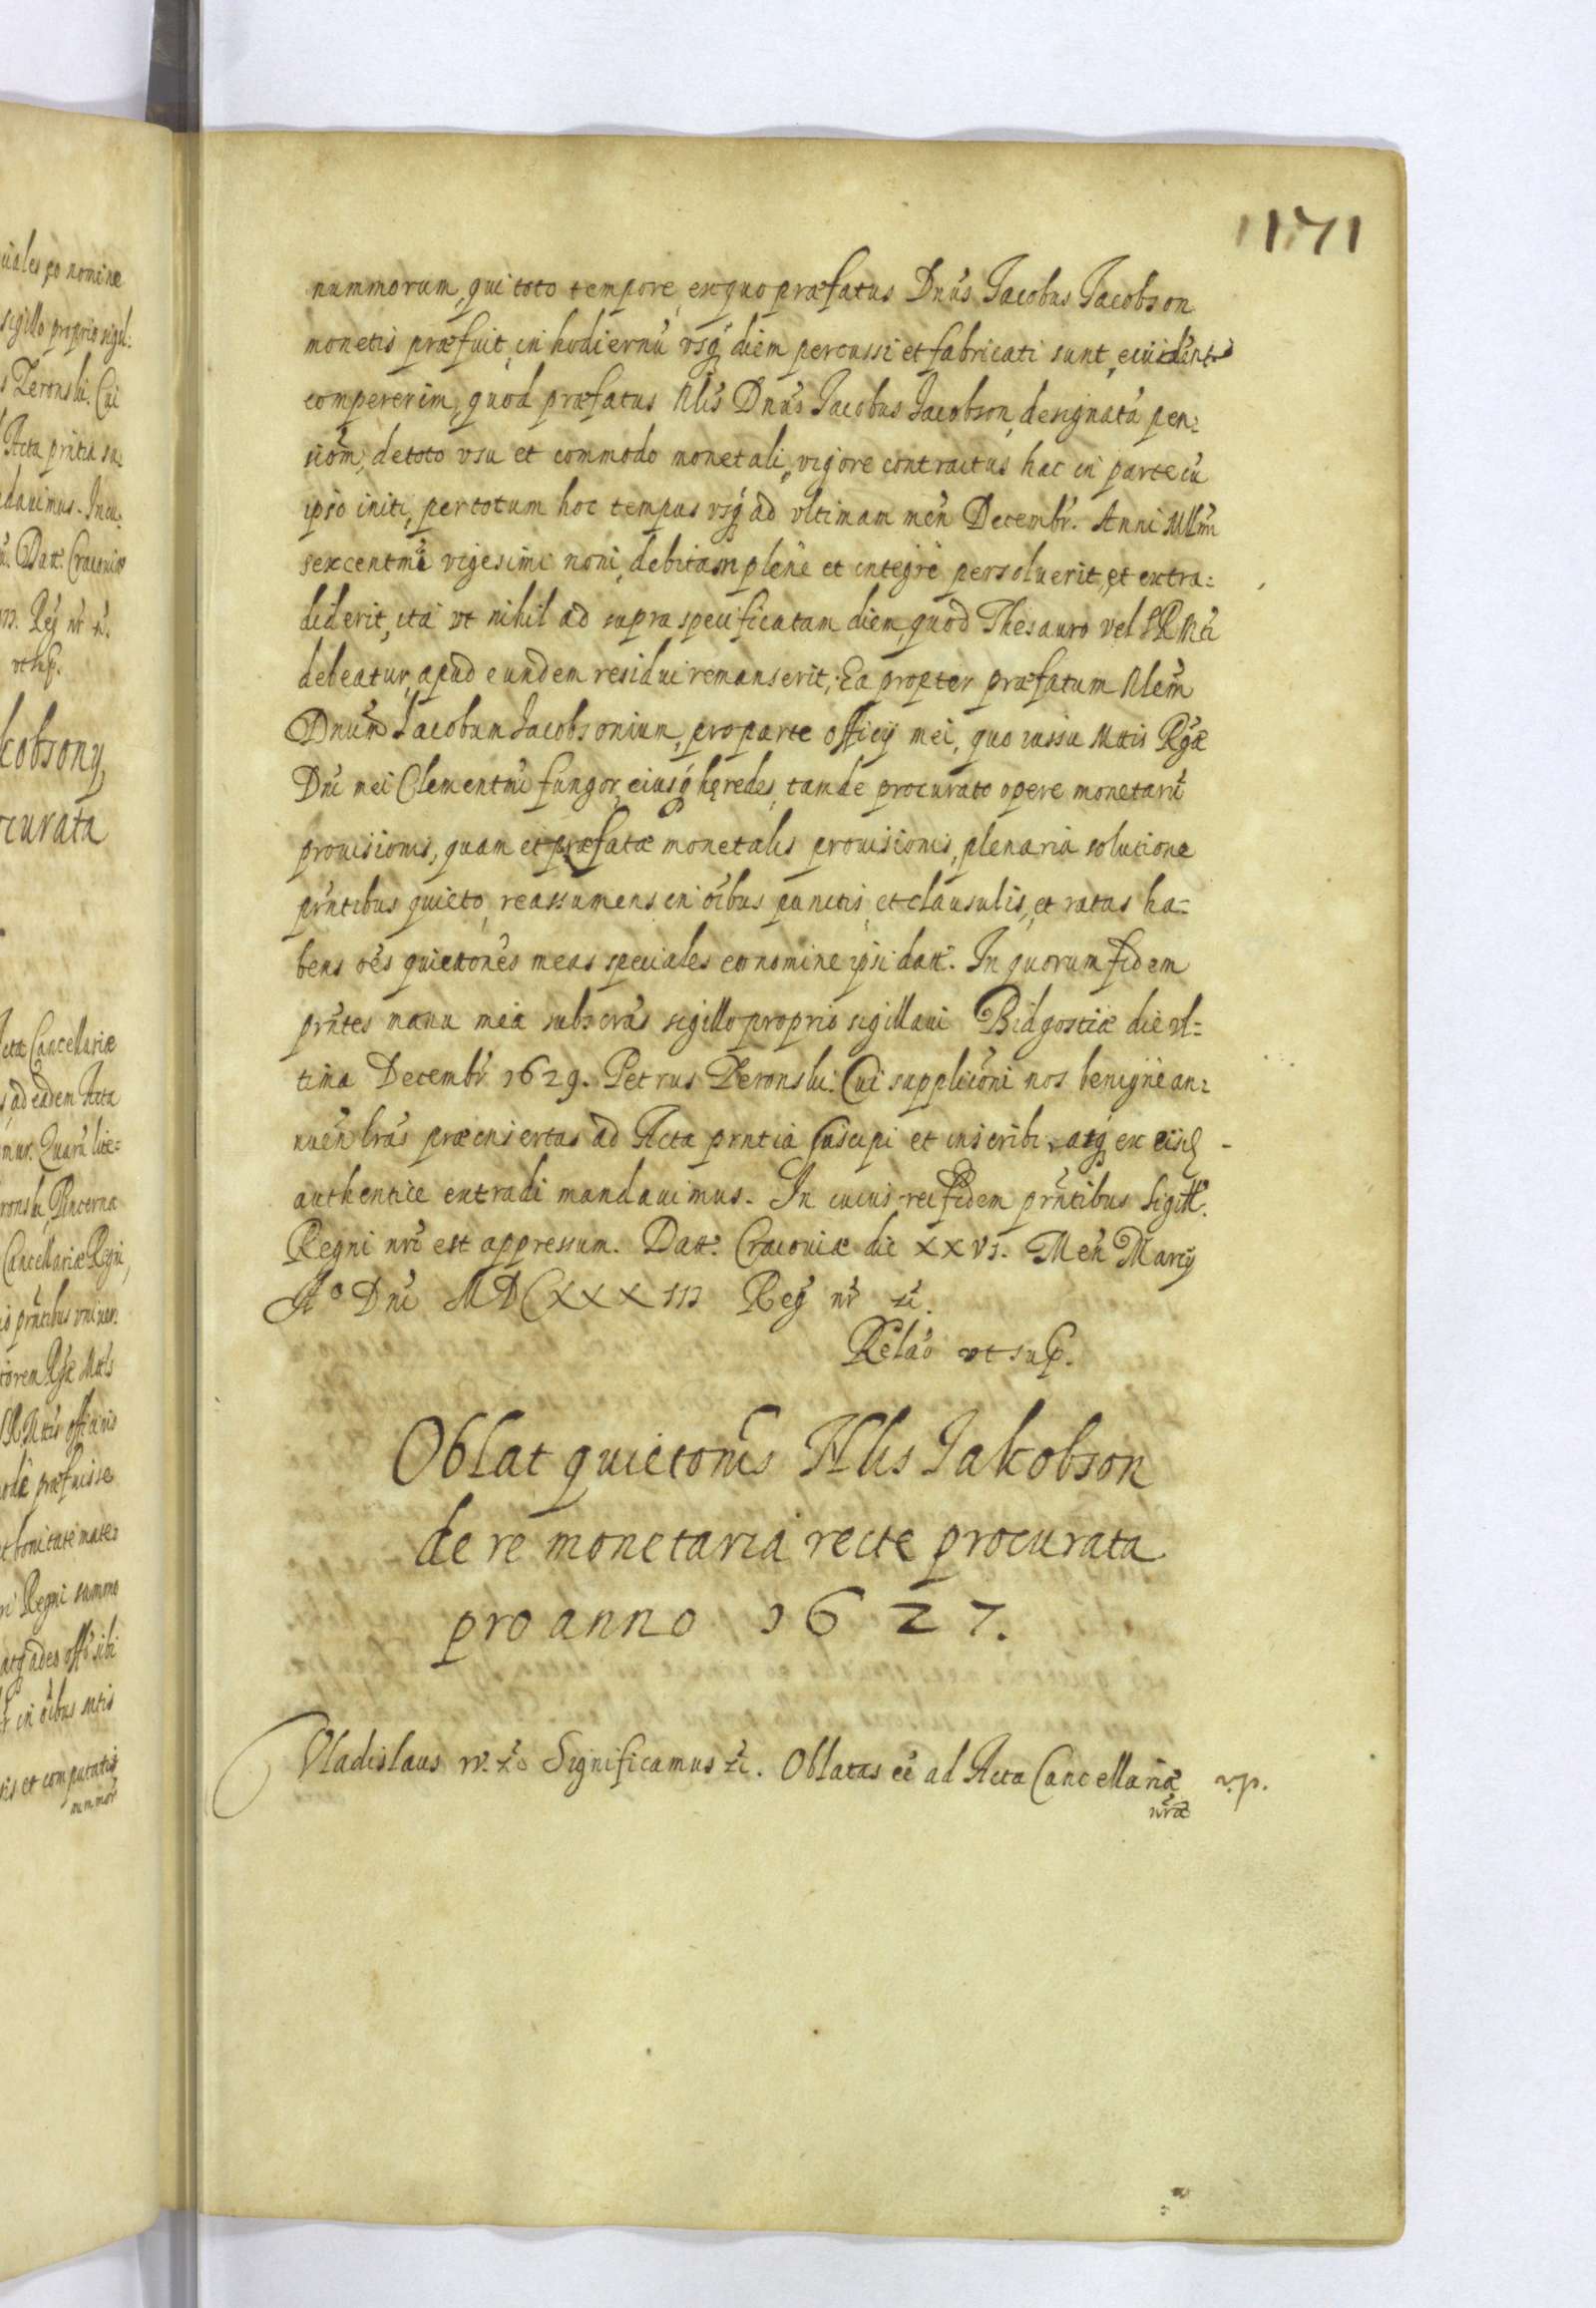 1171
nummorum, qui toto tempore, ex quo præfatus Dnus Jacobus Jacobson
monetis præfuit, in hodiernu usq diem percussi et fabricati sunt, evidenter
compererim, quod præfatus Nlis Dnus Jacobus Jacobson, designata pen:
siom, de toto usu et commodo monetali, vigore contractus hac in parte cu
ipso initi, per totum hoc tempus usq ad ultimam men Decembr. Anni Mllmi
sexcentmi vigesimi noni, debitam plenè et integrè persoluerit, et extra:
diderit, ita ut nihil ad supra specificatam diem, quod Thesauro vel SRMti
debeatur, apud eundem residui remanserit, Ea propter præfatum Nlem
Dnum Jacobum Jacobsonium, pro parte officij mei, quo iussu Mtis Rgæ
Dni mei Clementmi fungor, eiusq hęredes, tam de procurato opere monetaru
prouisionis, quam et præfatæ monetalis prouisionis, plenaria solutione
prntibus quieto, reassumens in oibus punctis et clausulis, et ratas ha:
bens oes quietaones meas speciales eo nomine ipsi datt. In quorum fidem
prntes manu mea subscras sigillo proprio sigillaui Bidgostiæ die ul:
tima Decembr 1629. Petrus Zeronski. Cui supplicaoni nos benignè an:
nuen lras præinsertas ad Acta prntia suscipi et inscribi, atq ex eisd
authentice extradi mandauimus. In cuius rei fidem prntibus Sigill.
Regni nri est appressum. Datt. Cracouiæ die XXVI. Men Marcij
Ao Dni MDCXXXIII Reg nr zc.
Relao ut sup.
Oblat quietonis Nlis Jakobson
de re monetaria recte procurata
pro anno 1627.
Vladislaus IV. zc Significamus zc. Oblatas ee ad Acta Cancellariæ
nræ

uales eo nomine
sigillo proprio sigil:
s Zeronski. Cui
Acta prntia su:
dauimus. In cu:
Datt. Cracouiæ
Reg nr zc.
ut sup.
cobsony,
curata
Acta Cancellariæ
ad eadem Acta
mur. Quaru lite:
ronski, Pincerna
Cancellariæ Regni,
prntibus vniuer:
torem Rgæ Mtis
SRMtis officinis
præfuisse
bonitate mate:
Regni summo
atq adeo
in oibus
sis et computatis
nummor